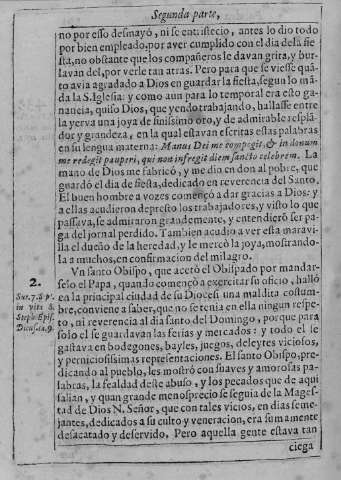 Segunda parte,
no por esso desmayó, ni se entistecio, antes lo dio todo
por bien empleado, por aver cumplido con el dia dela fie
sta, no obstante que los compañeros le davan grita, y bur
lavan del, por verle tan atras. Pero para que se viesse quã
to avia agradado a Dios en guardar la fiesta, segun lo mã
da la S. Iglesia: y como aun para lo temporal era esto ga-
nancia, quiso Dios, que yendo trabajando, hallasse entre
la yerva una joya de finissimo oro, y de admirable resplã
dor y grandeza, en la qual estavan escritas estas palabras
en su lengua materna: Manus Dei me compegit, & in donum
me redegit pauperi, qui non infregit diem sancto celebrem. La
mano de Dios me fabricó, y me dio en don al pobre, que
guardó el dia de fiesta, dedicado en reverencia del Santo.
El buen hombre a vozes començó a dar gracias a Dios: y
a ellas acudieron de presto los trabajadores, y visto lo que
passava, se admiraron grandemente, y entendierõ ser pa-
ga del jornal perdido. Tambien acudio a ver esta maravi-
lla el dueño de la heredad, y le mercó la joya, mostrando-
la a muchos, en confirmacion del milagro.
2.
Sur. 7. S pt.
in vita S.
Steph. Epis.
Diensis. c. 9.
Vn santo Obispo, que acetó el Obispado por mandar-
selo el Papa, quando començò a exercitar su oficio, halló
en la principal ciudad de su Diocesi una maldita costum-
bre, conviene a saber, que no se tenia en ella ningun respe-
to, ni reverencia al dia santo del Domingo, porque para
solo el se guardavan las ferias y mercados: y todo el se
gastava en bodegones, bayles, juegos, deleytes viciosos,
y perniciosissimas representaciones. El santo Obispo, pre-
dicando al pueblo, les mostró con suaves y amorosas pa-
labras, la fealdad deste abuso, y los pecados que de aqui
salian, y quan grande menosprecio se seguia de la Mages-
tad de Dios N. Señor, que con tales vicios, en dias seme-
jantes, dedicados a su culto y veneracion, era sumamente
desacatado y deservido. Pero aquella gente estava tan
ciega